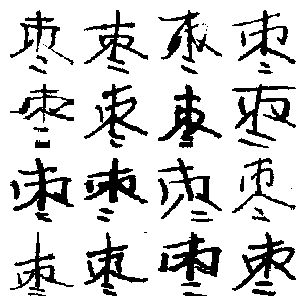 枣枣枣枣
枣枣枣枣
枣枣枣枣
枣枣枣枣